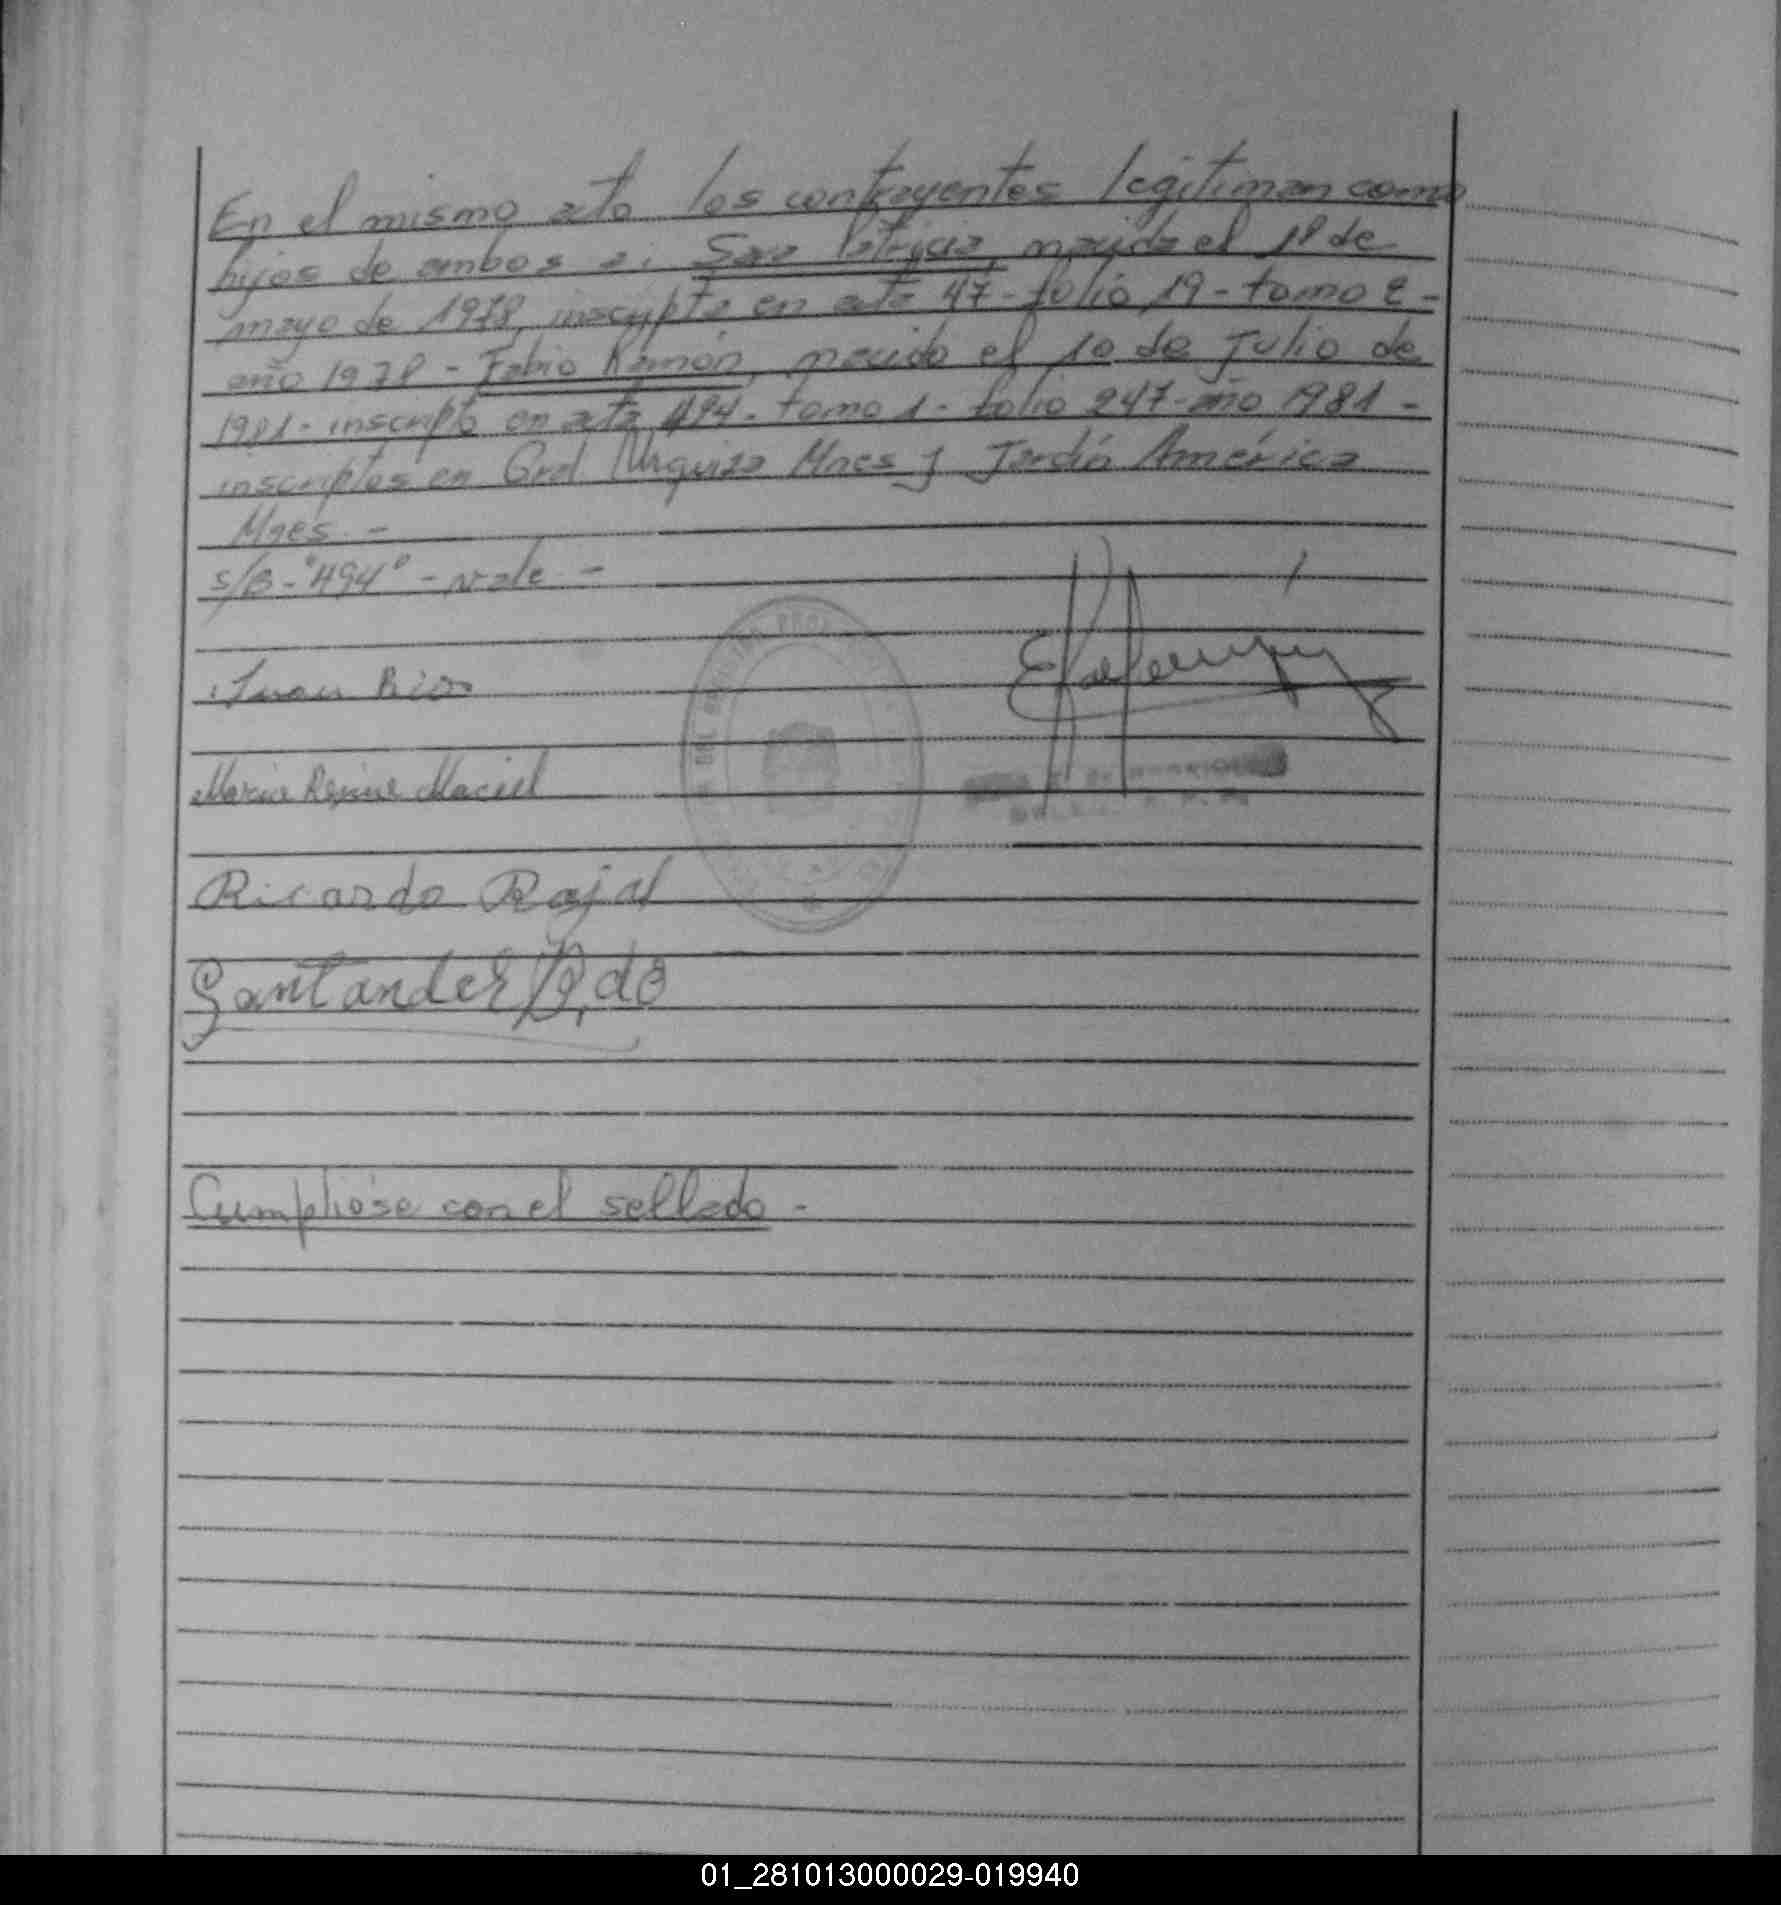 En el mismo acto los contrayentes legitiman como
hijos de ambos a: Sara Patricia, nacida el 1º de
mayo de 1978, inscripta en acta 47 - folio 19 - tomo 2 -
año 1978 - Fabio Ramón, nacido el 10 de Julio de
1981 - inscripto en acta 494 - tomo 1 - folio 247 - año 1981 -
inscriptos en Gral Urquiza Mnes y Jardín América
Mnes. -
s/B - "494" - vale. -
Juan Rios
Maria Regina Maciel
Ricardo Rojas
Santander
Cumplióse con el sellado -
01_281013000029-019940